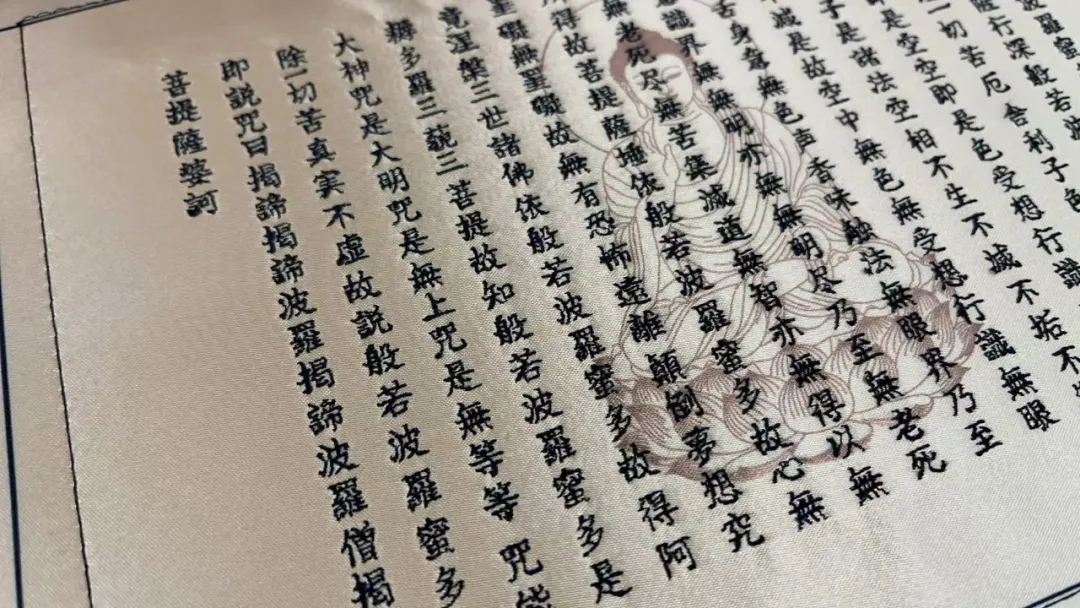 波羅蜜
薩行深般若波
一切苦厄舍利子色
是空空即是色受想行識
子是諸法空相不生不滅不垢不
減是故空中無色無受想行識無眼
舌身意無色声香味触法無眼界乃至
識界無無明亦無無明尽乃至無老死
無老死尽無苦集滅道無智亦無得以無
得故菩提薩埵依般若波羅蜜多故心無
罣礙無罣礙故無有恐怖遠離顛倒夢想究
竟涅槃三世諸佛依般若波羅蜜多故得阿
耨多羅三藐三菩提故知般若波羅蜜多是
大神咒是大明咒是無上咒是無等等咒能
除一切苦真実不虚故説般若波羅蜜多
即説咒曰揭諦揭諦波羅揭諦波羅僧揭
菩提薩婆訶